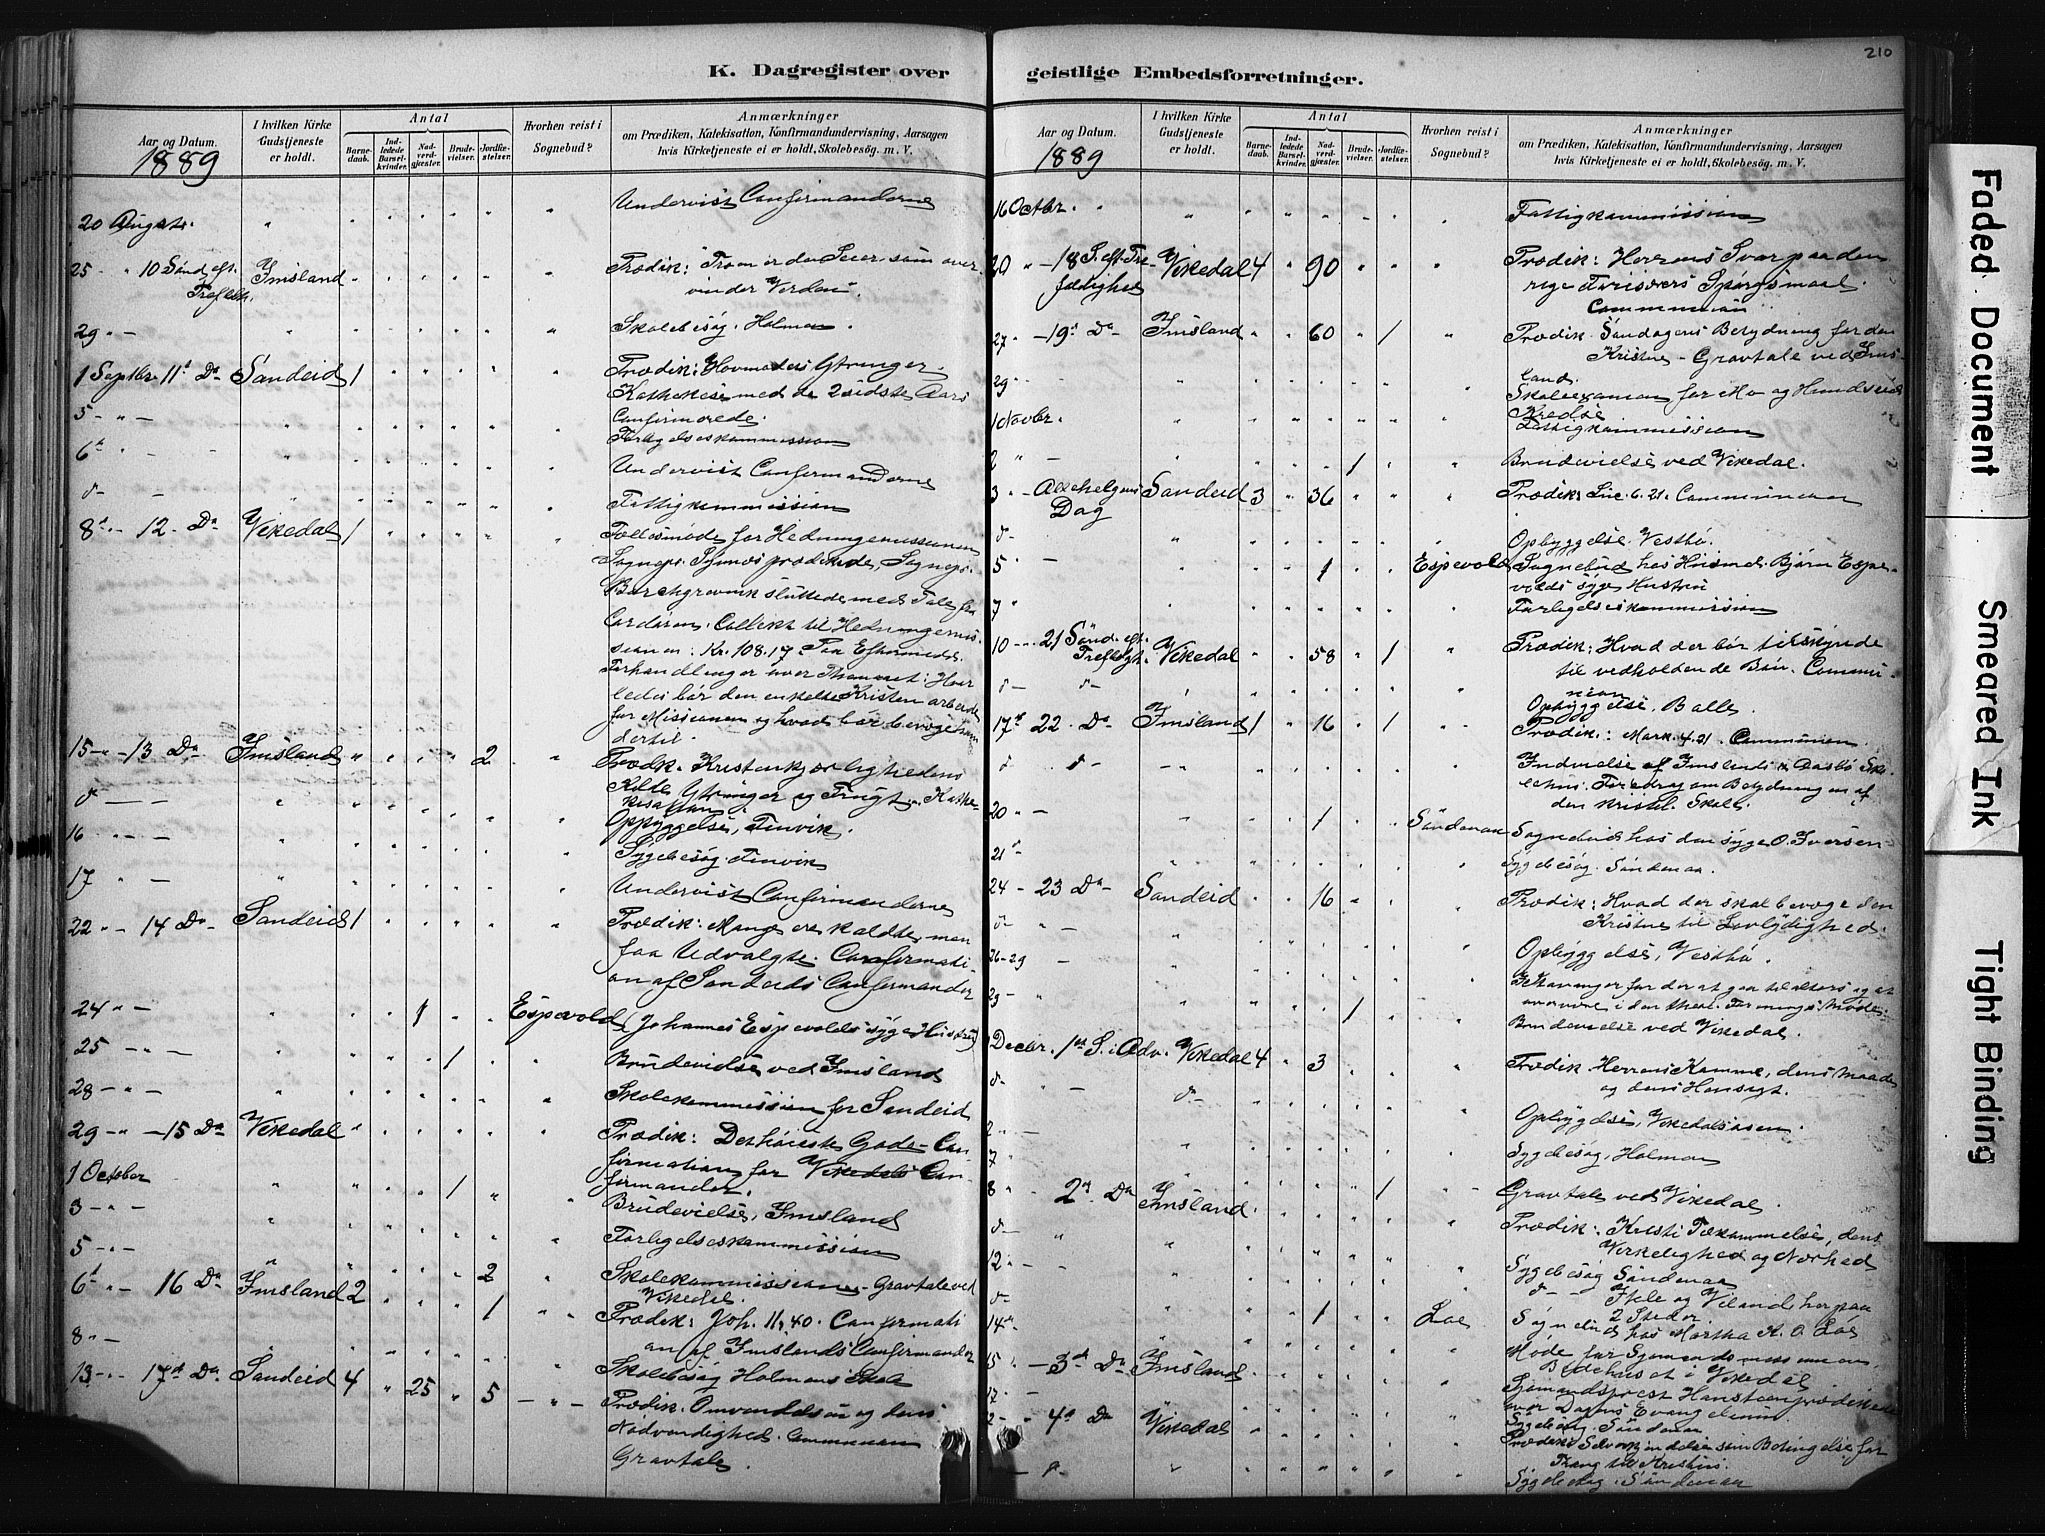 210
K. Dagregister over geistlige Embedsforretninger.
Aar og Datum.
1889
I hvilken Kirke Gudstjeneste er holdt.
Antal
Barnedaab.
Indledede Barselkvinder.
Nadverdgjæster.
Brudevielser.
Jordfæstelser.
Hvorhen reist i Sognebud?
Anmærkninger
om Prædiken, Katekisation, Konfirmandundervisning, Aarsagen
hvis Kirketjeneste ei er holdt, Skolebesøg. m. V.
20 August. Undervist Confirmanderne
25 - " 10 Sønd. eft. Trefoldh. Imsland Prædik: Troen er den Seier som over-
vinder Verden.
29 " — Skolebesøg. Holmen.
1 Septbr 11t Do Sandeid 1 Prædik: Hovmodets Ytringer.
Kathekese med de 2 sidste Aars
Confirmerede.
5 - " — Forligelseskommission
6t - " - Undervist Confirmanderne
d - - Fattigkommission
8t " - 12 - Do Vikedal 1 Fællesmøde for Hedningemissionen
prædikede, Sognepr.
sluttede med Tale fra
Cordøren. Collekt til Hedningemis-
sionen: Kr. 108.17. Paa Eftermidd.
Forhandlinger over Themaet: Hvor
ledes bør den enkelte Kristen arbeide
for Missionen og hvad bør bevæge ham
dertil.
15 - " - 13 Do Imsland 2 Prædk. Kristenkjærlighedens
Kilde, Ytringer og Frugt. Kathe-
kisation.
d — — Opbyggelse, Tinvik.
16 " - — Sygebesøg. Tinvik
17 " — Undervist Confirmanderne
22 " - 14 Do Sandeid 1 Prædik: Mange ere kaldte, men
faa Udvalgte. Confirmati-
on af Sandeids Confirmander
24 " — 1 Espevold (Johannes Espevolds syge Hustru)
25 - " — 1 Brudevielse ved Imsland
28 - " — Skolekommission for Sandeid
29 - " - 15 Do Vikedal Prædik: Det høieste Gode - Con-
firmation for Vikedals Con-
firmander.
1 October 1 Brudevielse, Imsland
3 - " — Forligelseskommission
5 - " - 2 Skolekommission - Gravtale ved
Vikedal.
6t " - 16 Do Imsland 2 1 Prædik: Joh. 11,40. Confirmati
on af Imslands Confirmander
8 " — Skolebesøg Holmens Skole
13 - " - 17d Do Sandeid 4 25 5 Prædik. Omvendelsen og dens
Nødvendighed. Communion
Gravtale.
Aar og Datum.
1889
I hvilken Kirke Gudstjeneste er holdt.
Antal
Barnedaab.
Indledede Barselkvinder.
Nadverdgjæster.
Brudevielser.
Jordfæstelser.
Hvorhen reist i Sognebud?
Anmærkninger
om Prædiken, Katekisation, Konfirmandundervisning, Aarsagen
hvis Kirketjeneste ei er holdt, Skolebesøg. m. V.
16 Octbr. Fattigkommission
20 " - 18 S. eft. Tre- foldighed Vikedal 4 90 Prædik: Herrens Svar paa den
Spørgsmaal.
Communion
27 " - 19d Do Imsland 60 1 Prædik. Søndagens Betydning for den
Kristne - Gravtale ved Ims-
land.
29 Skoleexamen for Mo og Hundseid
Kredse
1 Novbr. Fattigkommission
2 " — 1 Brudevielse ved Vikedal.
3 " - Allehelgens Dag Sandeid 3 36 Prædik: Luc. 6.21. Communion
d - Opbyggelse. Vestbø.
5 — 1 Espevold Sognebud hos Husmd. Bjørn Espe-
volds syge Hustru
7 " Forligelseskommission
10 - - 21 Sønd. eft. Trefoldigh. Vikedal 58 1 Prædik: Hvad der bør tilskynde
til vedholdende Bøn. Commu
nion
d — d — Opbyggelse. Balle.
17d 22 - Do Imsland 1 16 1 Prædik.: Mark. 4.21. Communion.
d d — Indvielse af Imslands & Aasbø Sko
lehus. Foredrag om Betydningen af
den kristel. Skole
20 " — 1 Søndenaa Sognebud hos den syge O. Iversen
21 — Sygebesøg. Søndenaa.
24 - 23 Do Sandeid 16 Prædik: Hvad der skal bevæge den
Kristne til Lovlydighed.
d - " — Opbyggelse, Vestbø.
26-29 —
29 - " 1 Brudevielse ved Vikedal.
Decbr. 1ste S. i Adv. Vikedal 4 3 Prædik. Herrens Komme, dens Maade
og dens Hensigt.
d " — d — Opbyggelse, Vikedalsåsen.
2 " — Sygebesøg, Holmen
7 " 1 Gravtale ved Vikedal.
8 " - 2d Do Imsland. Prædik: Kristi Tilkommelse, dens
Virkelighed og Nærhed
d — Sygebesøg Søndenaa
12 " — d — og Vestland herpaa
2 Steder
14 " 1 Løe Sognebud hos Martha A. O. Løe
Møde for Sjømandsmissionen,
Bedehuset i Vikedal
15 " - 3d Do Imsland Sjømandsprest prædikede
over Dagens Evangelium
17 " — Sygebesøg. Søndenaa
4d Do Vikedal Prædik: som Betingelse for
Trang til Kristus.
Sygebesøg. Søndenaa
Faded Document
Smeared Ink
Tight Binding